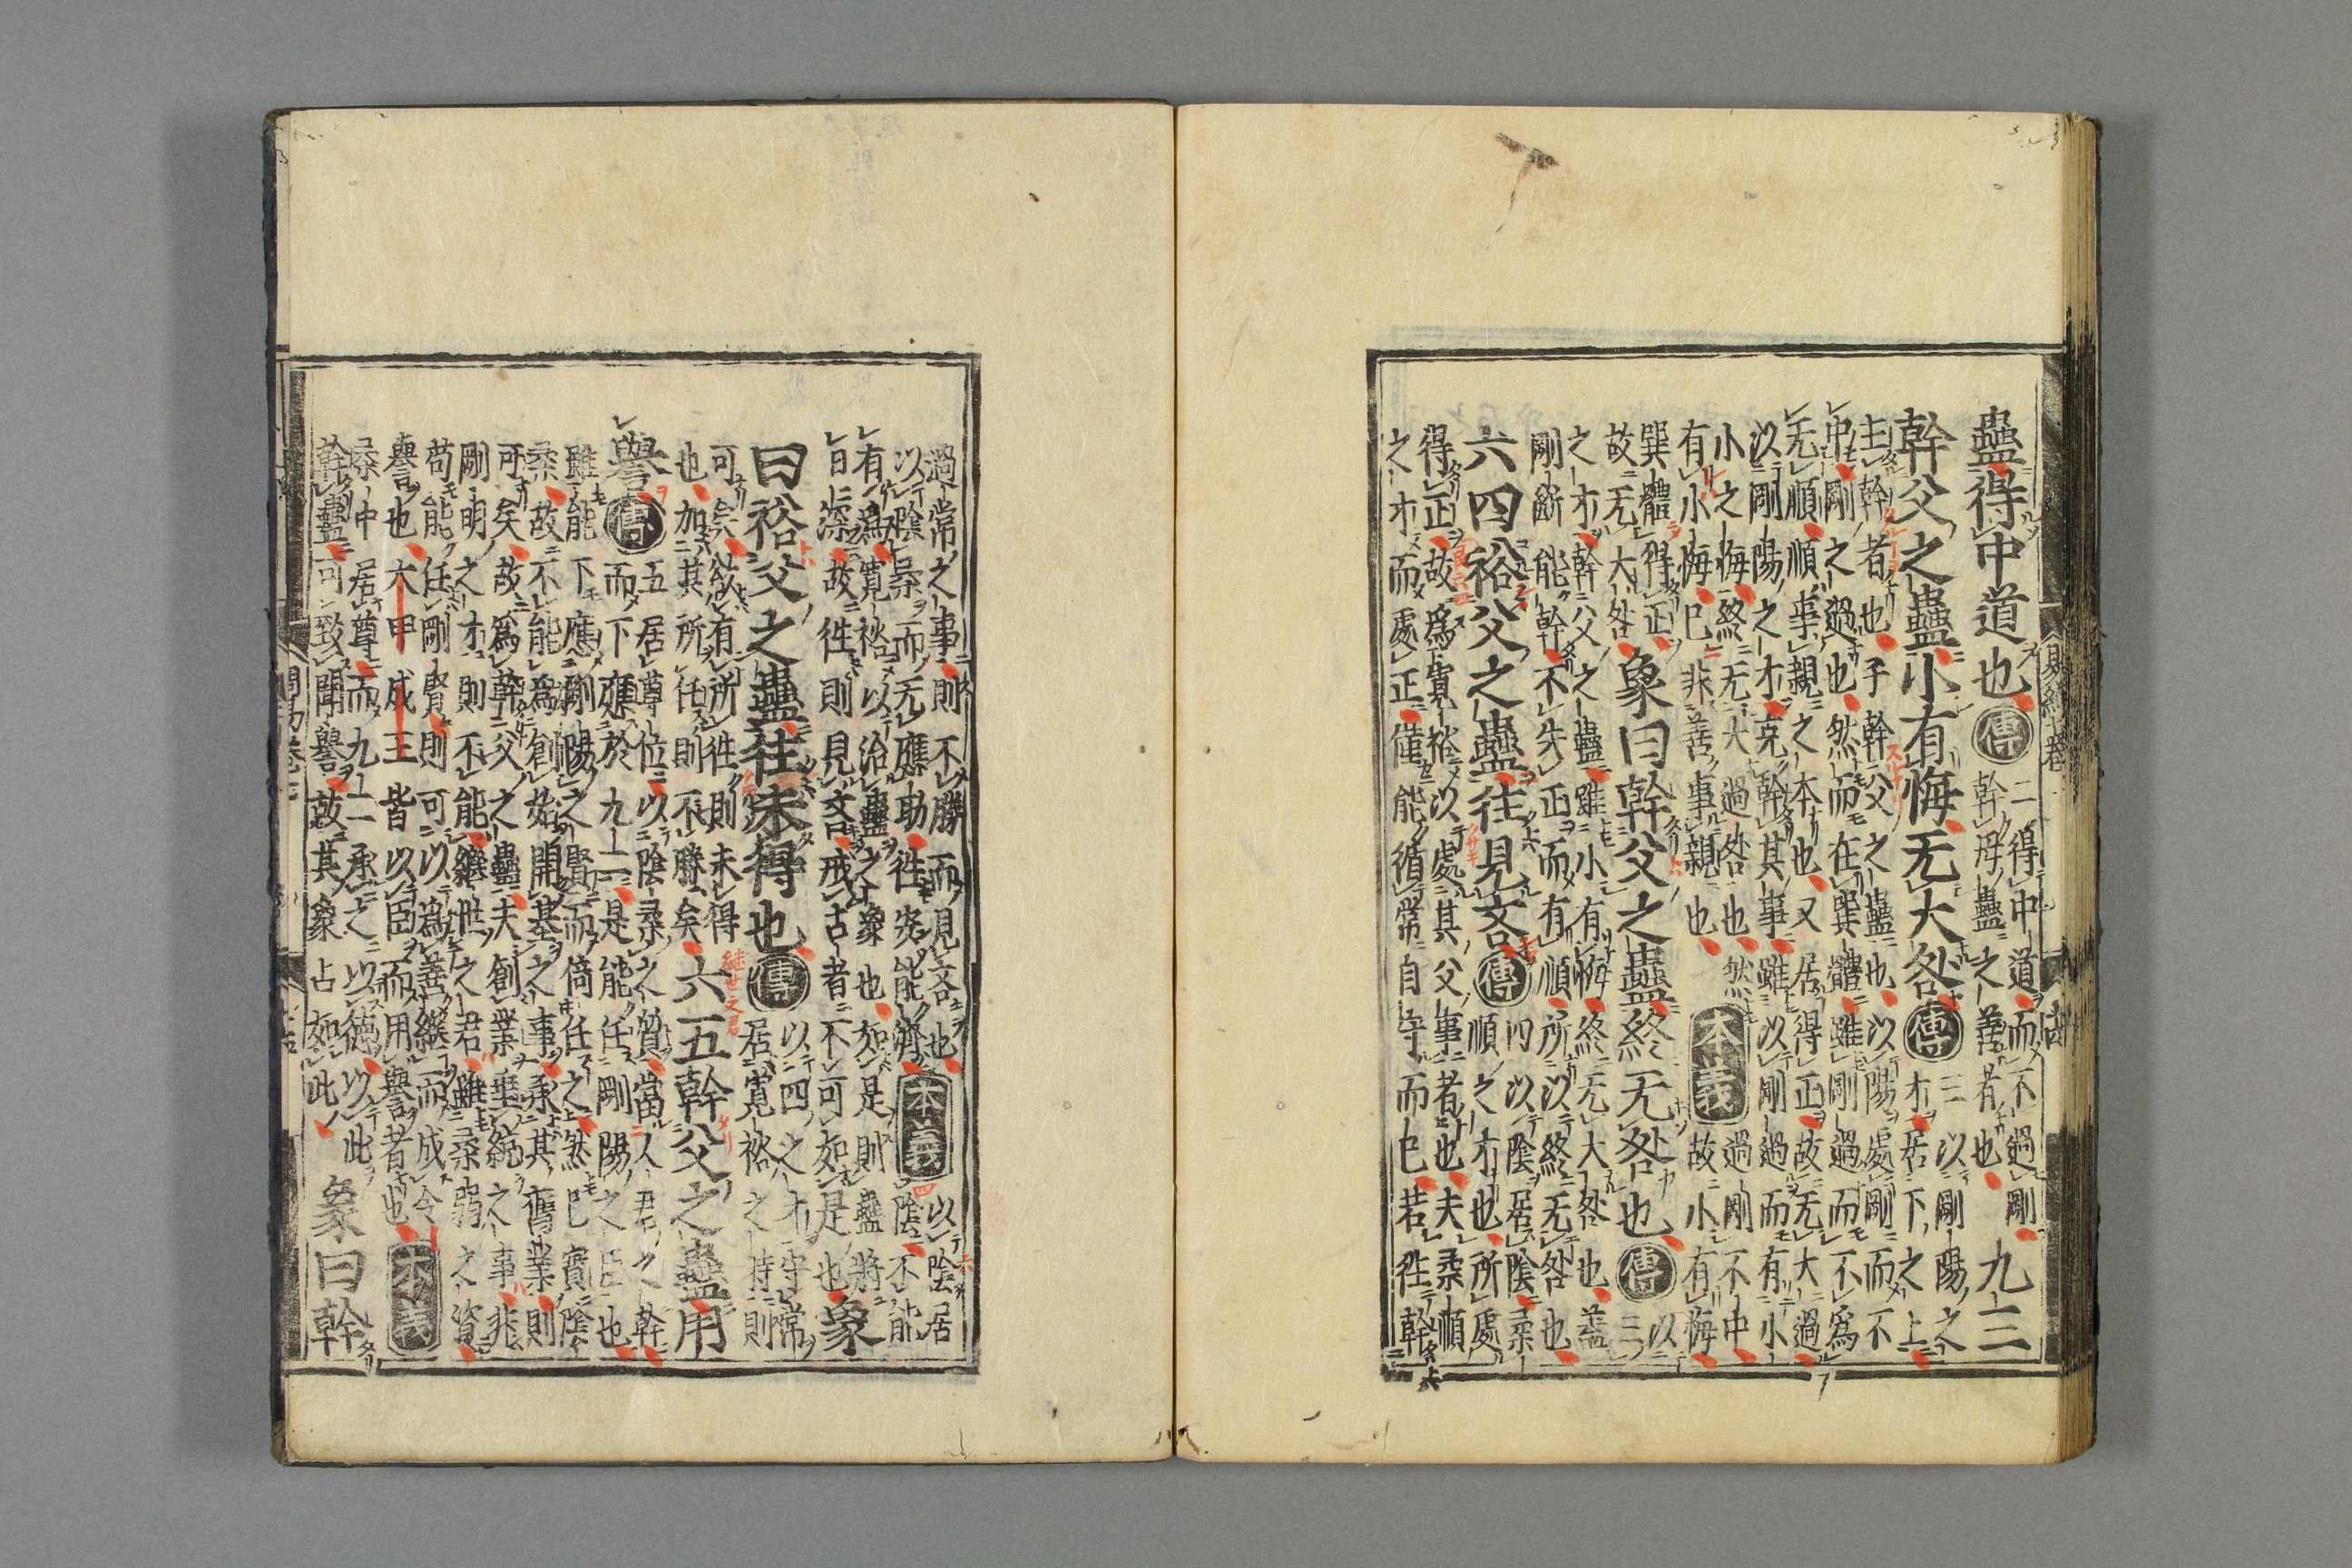 蠱得中道也傳二得中道而不過剛
幹母蠱之善者也九三
幹父之蠱小有悔无大咎傳三以剛陽之
才居下之上
主幹者也子幹父之蠱也以陽處剛而不
中剛之過也然而在巽體雖剛過而不爲
无順順事親之本也又居得正故无大過
以剛陽之才克幹其事雖以剛過而有小
小之悔終无大過咎也然
有小悔已非善事親也本義過剛不中
故小有悔
巽體得正
故无大咎象曰幹父之蠱終无咎也傳以
三
之才幹父之蠱雖小有悔終无大咎也蓋
剛斷能幹不失正而有順所以終无咎也
六四裕父之蠱往見吝傳四以陰居陰柔
順之才也所處
得正故爲寬裕以處其父事者也夫柔順
之才而處正僅能循常自守而已若往幹
過常之事則不勝而見吝也
以陰柔而无應助往安能濟本義以陰居
陰不能
有爲寬裕以治蠱之象也如是則蠱將
日深故往則見吝戒占者不可如是也象
曰裕父之蠱往未得也傳以四之才守常
居寬裕之持則
可矣欲有所往則未得
也加其所任則不勝矣六五幹父之蠱用
継世之君
譽傳五居尊位以陰柔之質當人君之幹
而下應於九二是能任剛陽之臣也
雖能下應剛陽之賢而倚任之然已實陰
柔故不能爲創始開基之事承其舊業則
可矣故爲幹父之蠱夫創業垂統之事非
剛明之才則不能繼世之君雖柔弱之資
苟能任剛賢則可以爲善繼而成令
譽也大甲成王皆以臣而用譽者也本義
柔中居尊而九二承之以德以此
幹蠱可致聞譽故其象占如此象曰幹